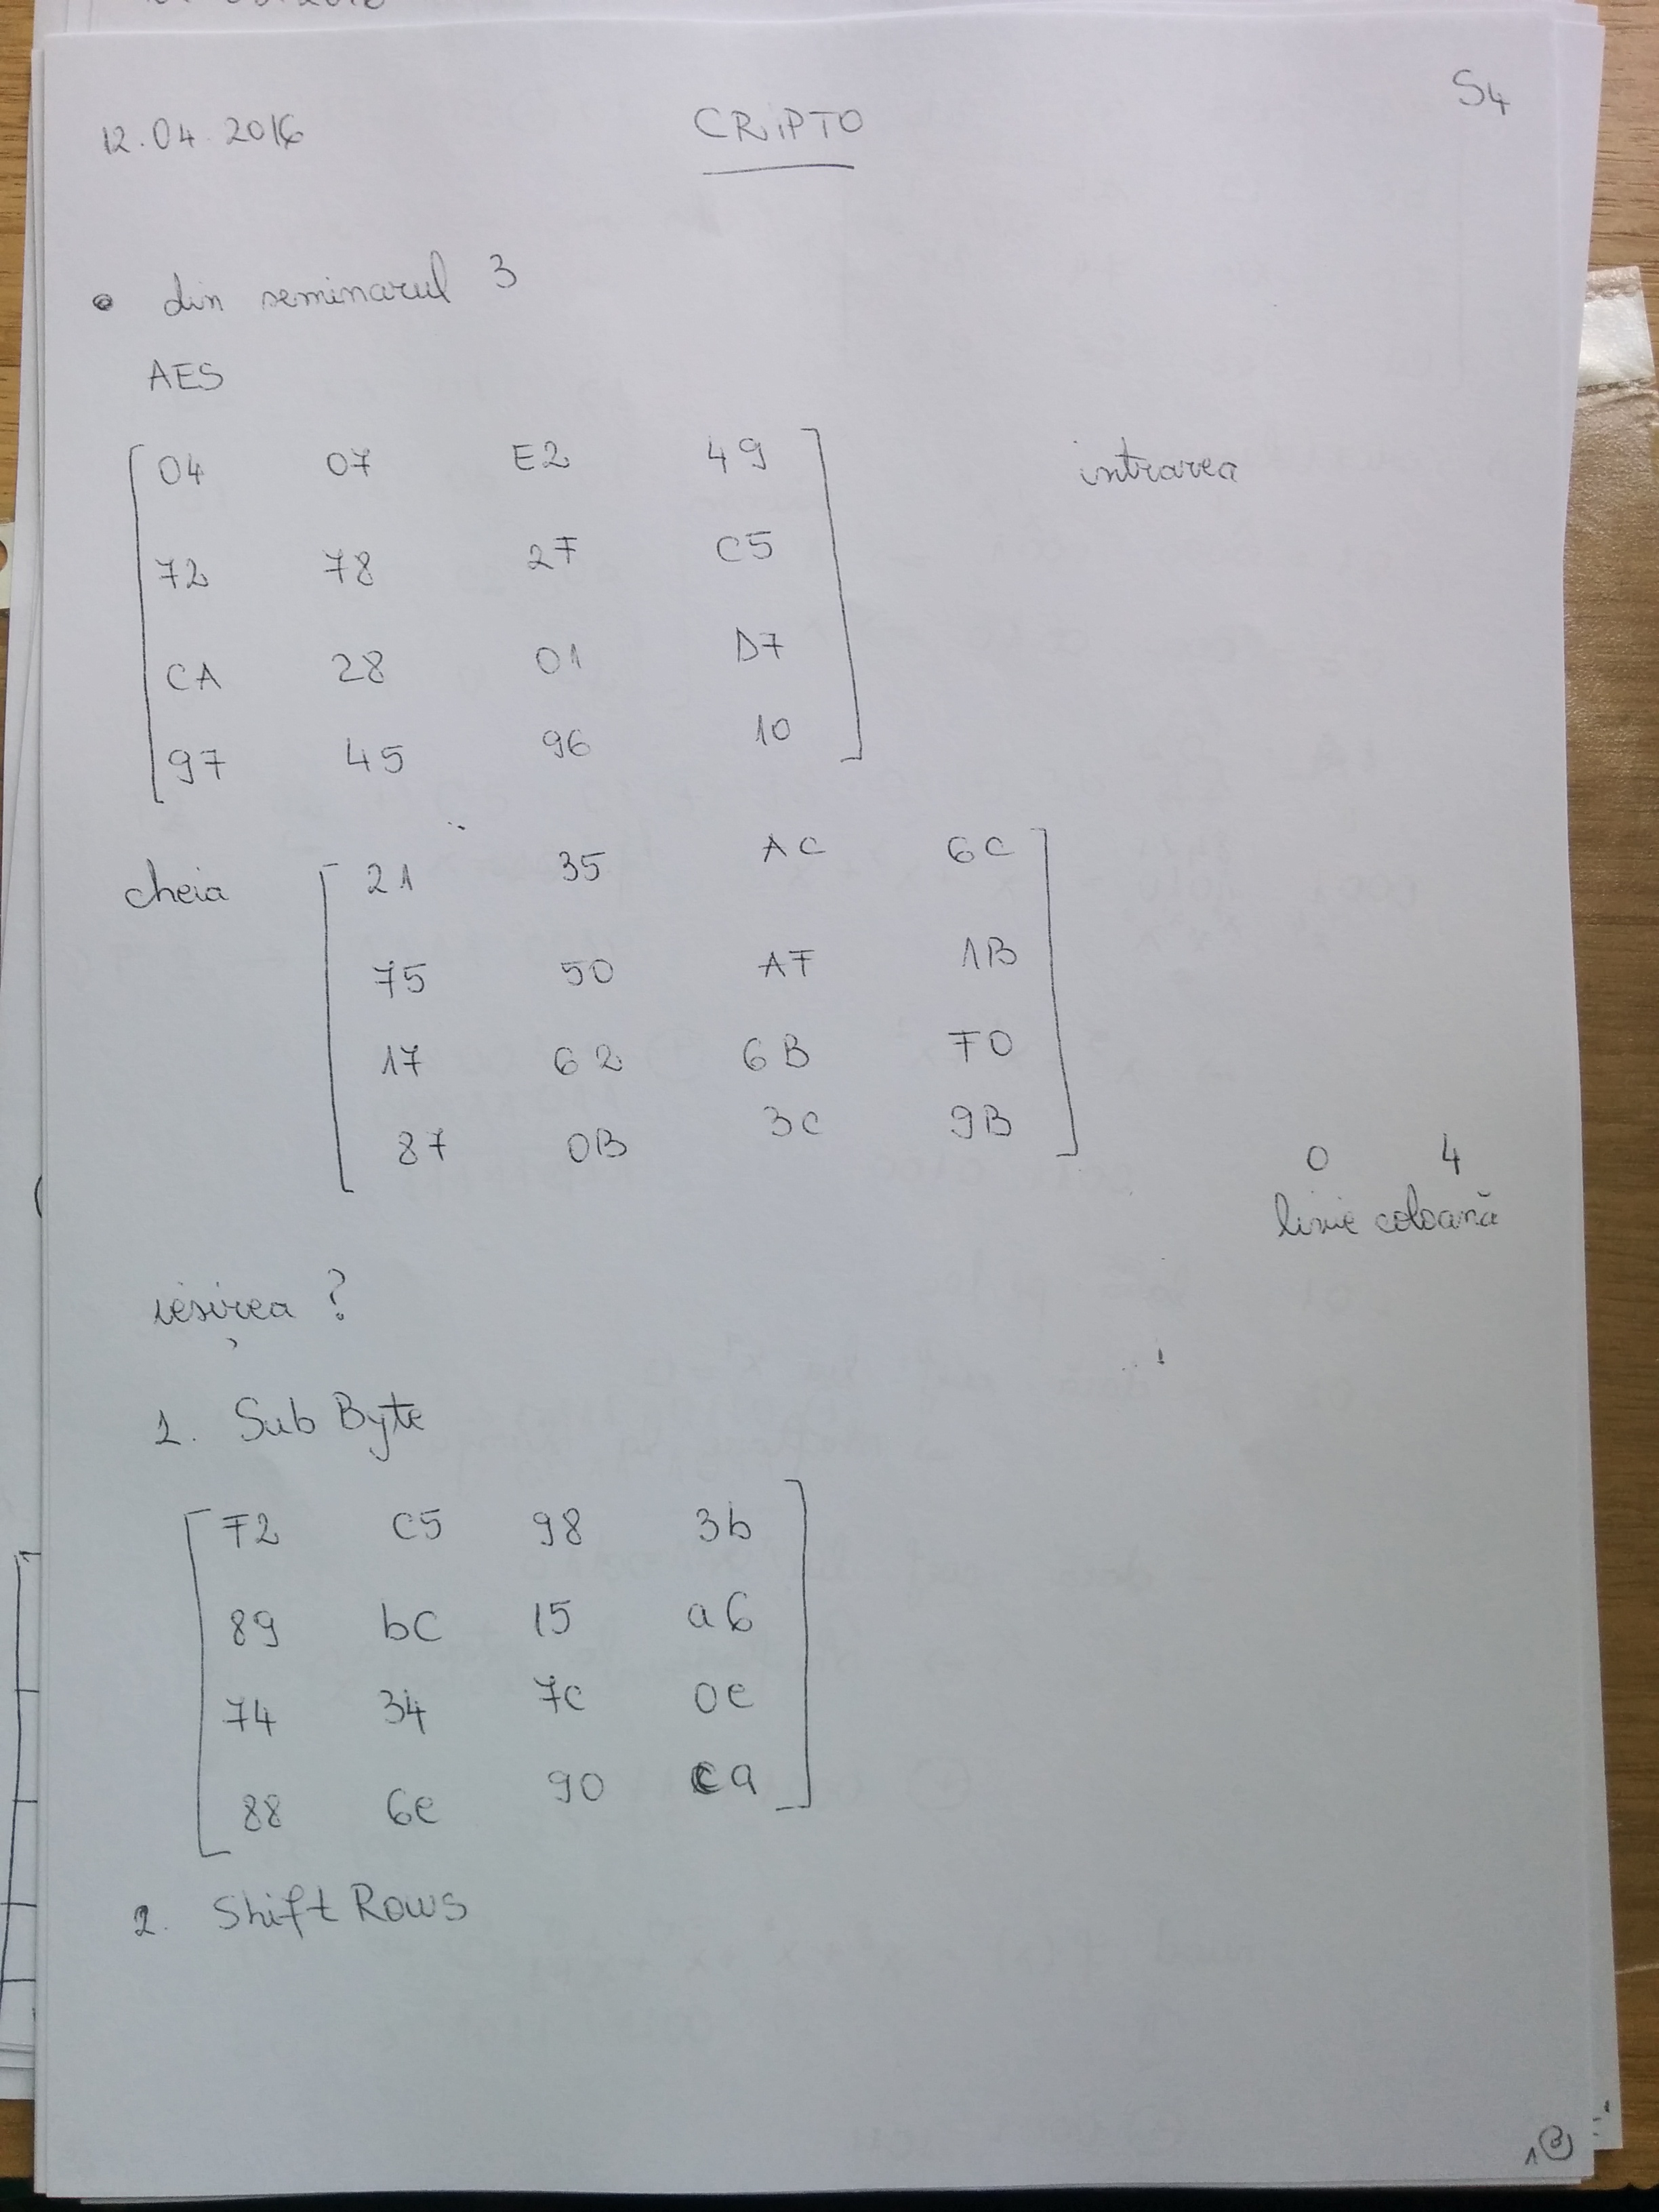 S4
12.04.2016 CRIPTO
• din seminarul 3
AES
04 07 E2 49 intrarea
72 78 2F C5
CA 28 01 D7
97 45 96 10
cheia 21 35 AC 6C
75 50 AF 1B
17 62 6B F0
87 0B 3C 9B
0 4
linie coloană
ieșirea ?
1. Sub Byte
F2 C5 98 3b
89 bC 15 a6
74 34 7c 0e
88 6e 90 ca
2. Shift Rows
1